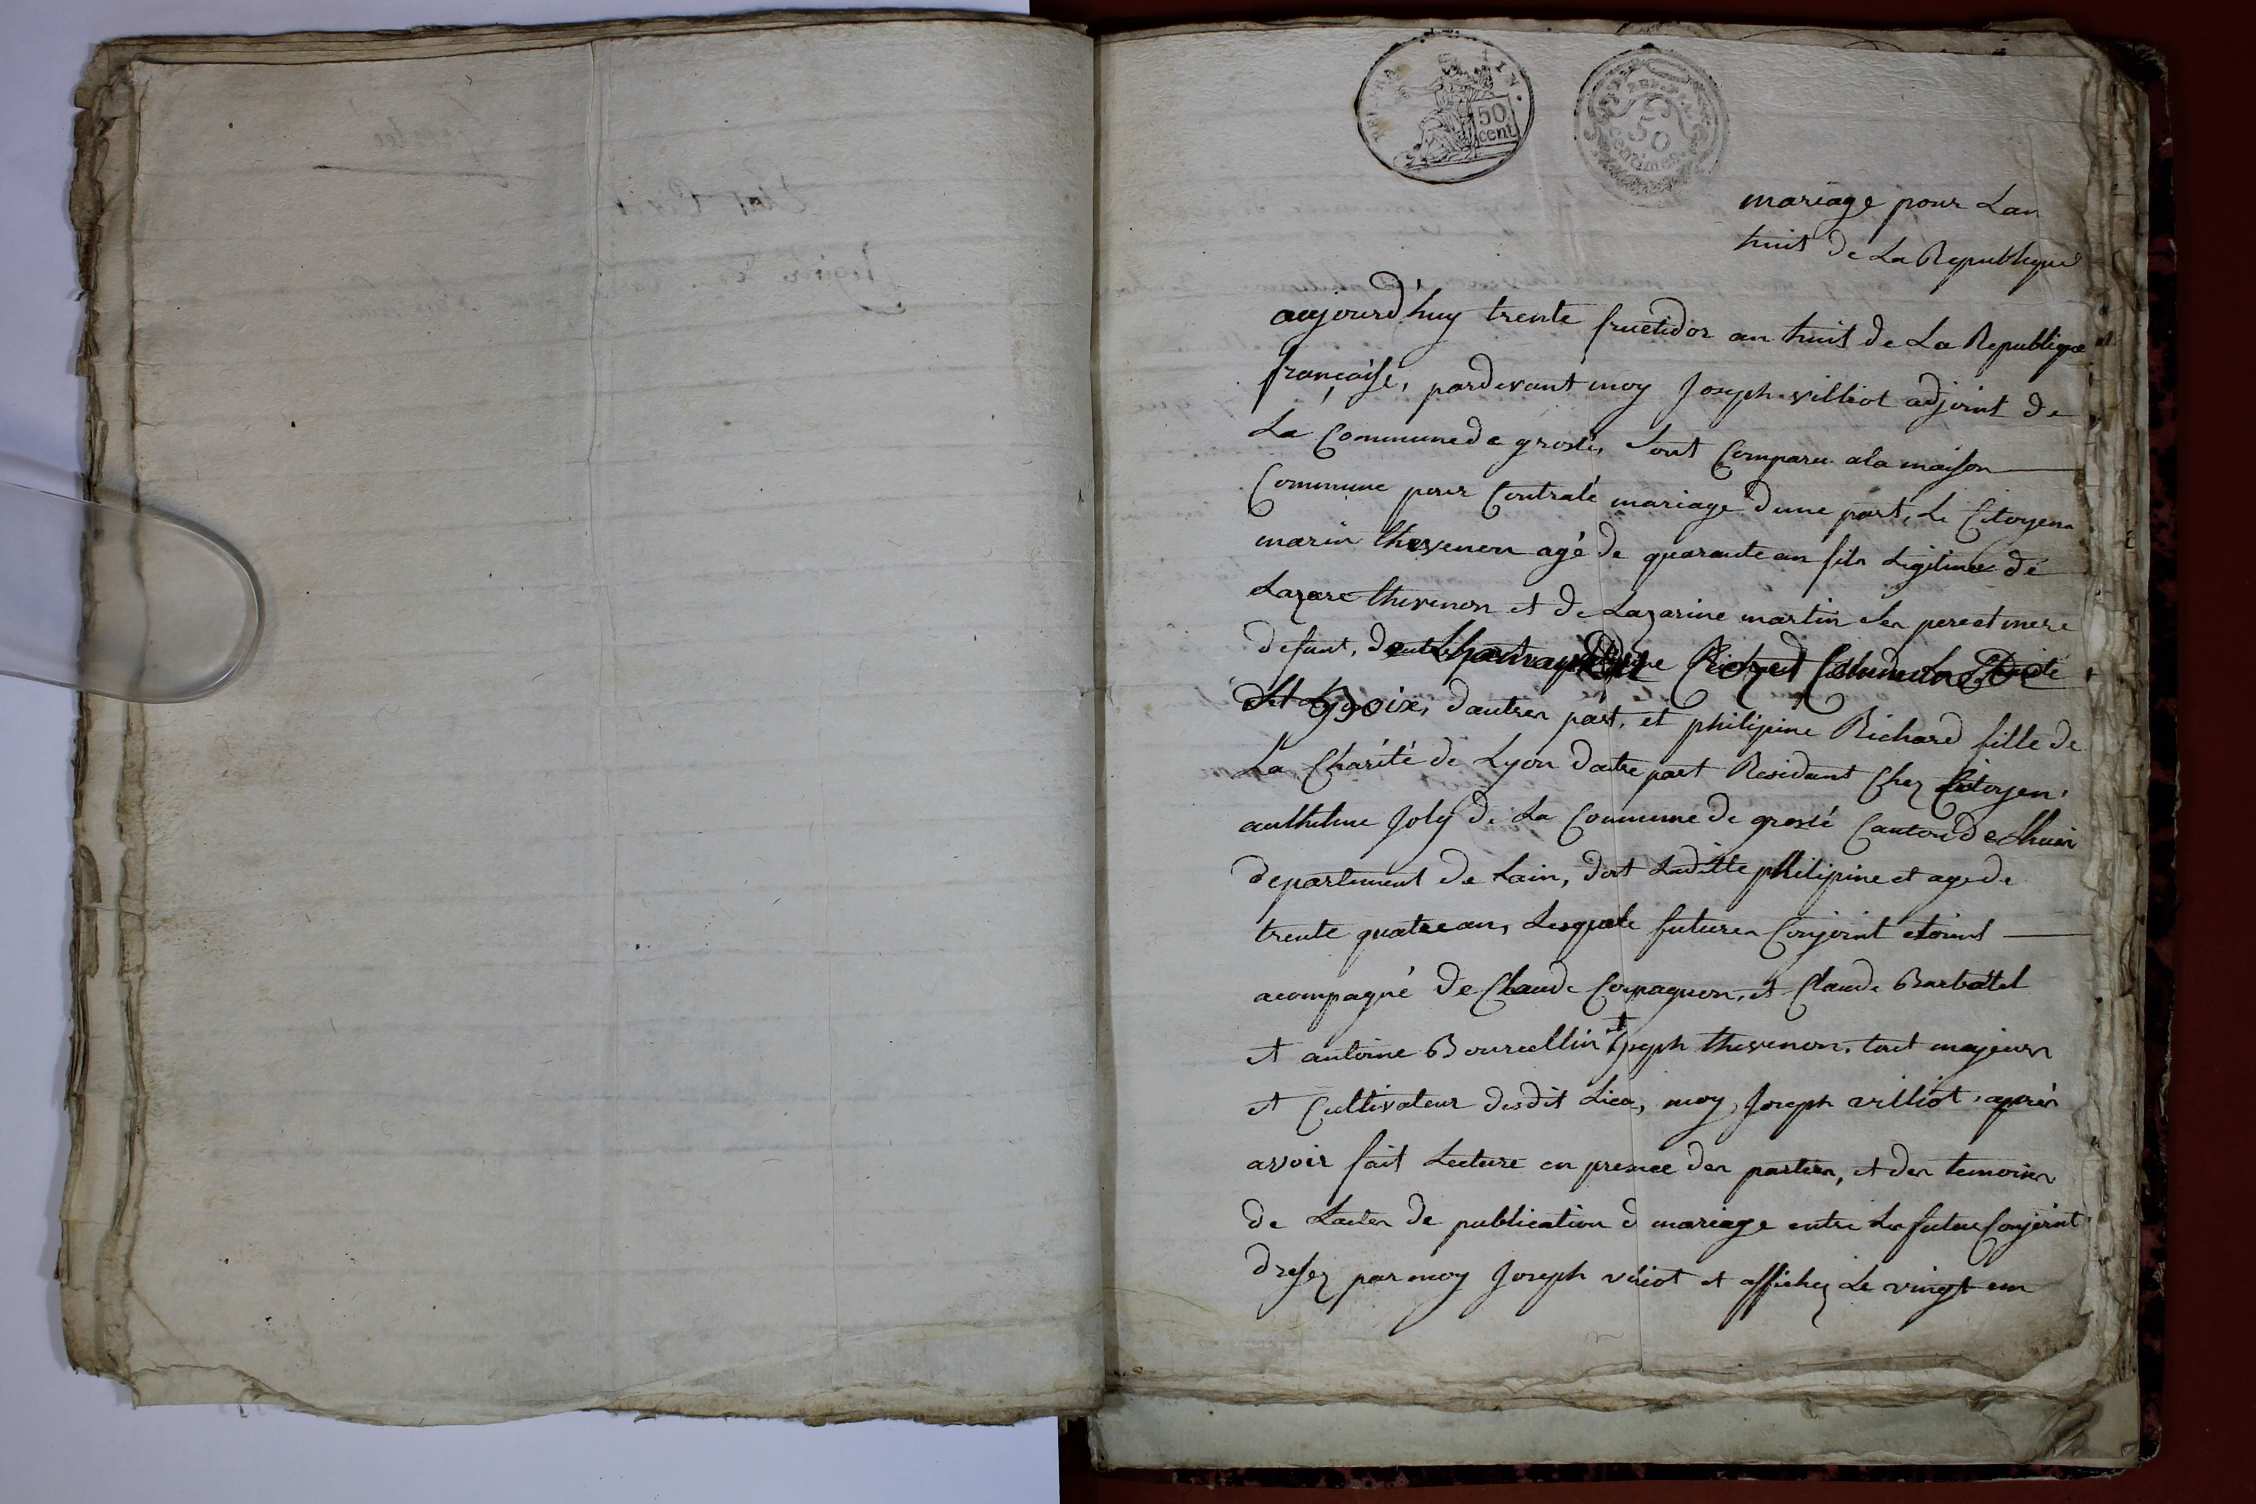 50
cent
REP. F.
50
centimes
mariage pour Lan
huit de La Republique
aujourd'huy trente fructidor an huit de La Republique
française, pardevant moy Joseph villiot adjoint de
La Commune de groslé, Sont Comparu ala maison
Commune pour Contraté mariage dune part, Le Citoyen
marin thevenon agé de quarante an fils Legitime de
Lazare thevenon et de Lazarine martin Ses pere et mere
defunt,
dautres part, et philipine Richard fille de
La Charité de Lyon datre part Residant Chez Citoyen
anthelme Joly de La Commune de groslé Canton de Lhuis
departement de Lain, dont Laditte philipine et age de
trente quatre an, Lesquele futures Conjoint etoint
acompagné de Claude Conpagnon, et Claude Barbatel
et antoine Bourcellin et Joseph thevenon, tout majeurs
et Cultivateur desdit Lieu, moy Joseph villiot, après
avoir fait Lecture en presnce des parties, et des temoins
de Lactes de publication d mariage entre Les futur Conjoint
dressez par moy Joseph viliot et affichez Le vingt un